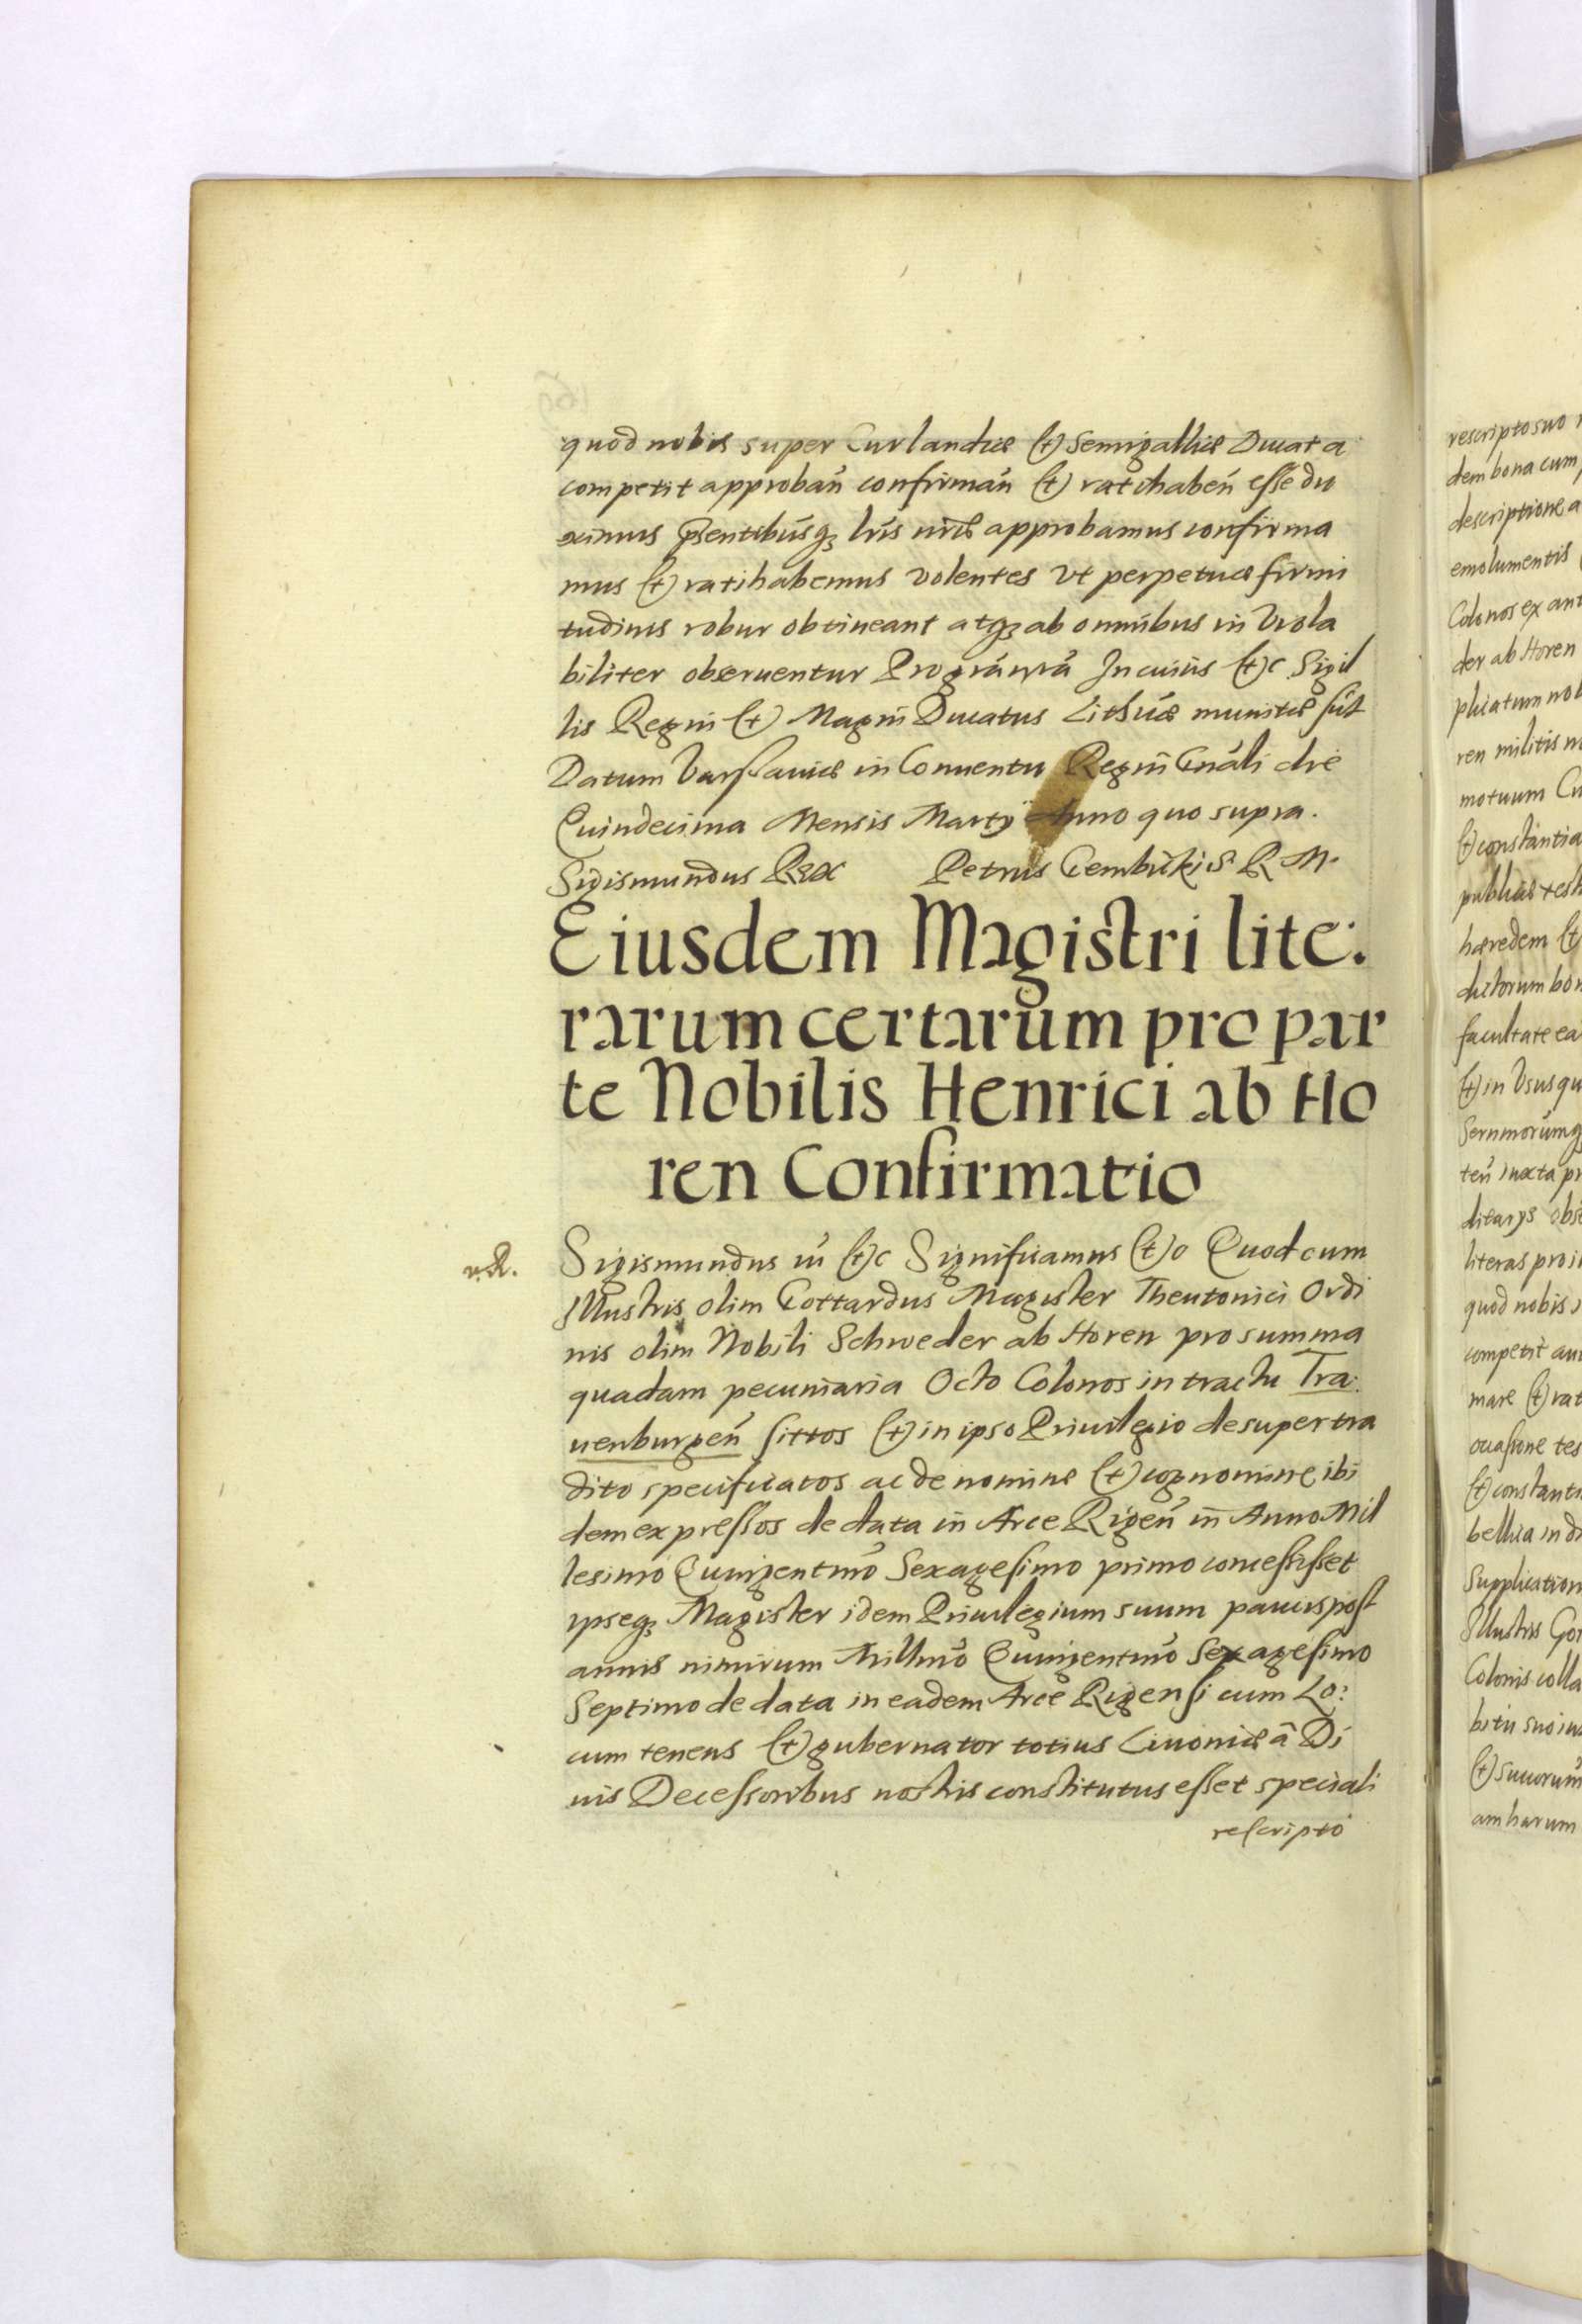 quod nobis super Curlandiæ (et) Semigalliæ Ducatu
competit approbañ confirmañ (et) ratihabeñ esse du
ximus p̃sentibusq₃ lr̃is nr̃is approbamus confirma
mus (et) ratihabemus volentes vt perpetuæ firmi
tudinis robur obtineant atq₃ ab omnibus in viola
biliter obseruentur In cuius (et)c Sigil
lis Regni (et) Magni Ducatus Lithuæ munitæ sũt
Datum Varssauiæ in Conuentu Regni Gnãli die
Quindecima Mensis Martÿ Anno quo supra.
Sigismundus Rex Petrus Gembicki S. R. M.
Eiusdem Magistri lite:
rarum certarum pro par
te Nobilis Henrici ab Ho
ren Confirmatio
Sigismundus iii (et)c Significamus (et)c Quod cum
Illustris olim Gottardus Magister Theutonici Ordi
nis olim Nobili Schweder ab Horen pro summa
quadam pecuniaria Octo Colonos in tractu Tra:
uenburgeñ sittos (et) in ipso Priuilegio desuper tra
dito specificatos ac de nomine (et) cognomine ibi
dem expressos de data in Arce Rigeñ in Anno Mil
lesimo Quingentmõ Sexagesimo primo concessisset
ipseq₃ Magister idem Priuilegium suum paucis post
annis nimirum Millmõ Quingentmõ Sexagesimo
Septimo de data in eadem Arce Rigensi cum Lo:
cum tenens (et) gubernator totius Liuoniæ â Di
uis Decessoribus nostris constitutus esset speciali
rescripto
rescripto suo
dem bona cum
descriptione a
emolumentis
Colonos ex ant
der ab Horen
plicatum nob
ren militis n
motuum Cu
(et) constantia
publicæ test
hæredem (et)
dictorum bon
facultate ea
(et) in Vsus qu
teñ iuxta pr
ditarÿs obse
literas pro i
quod nobis s
competit
mare (et) rat
occasione tes
(et) constanti
bellica in d
Supplication
Illustris Got
Colonis colla
bitu suo iu
(et) suorum
am harum